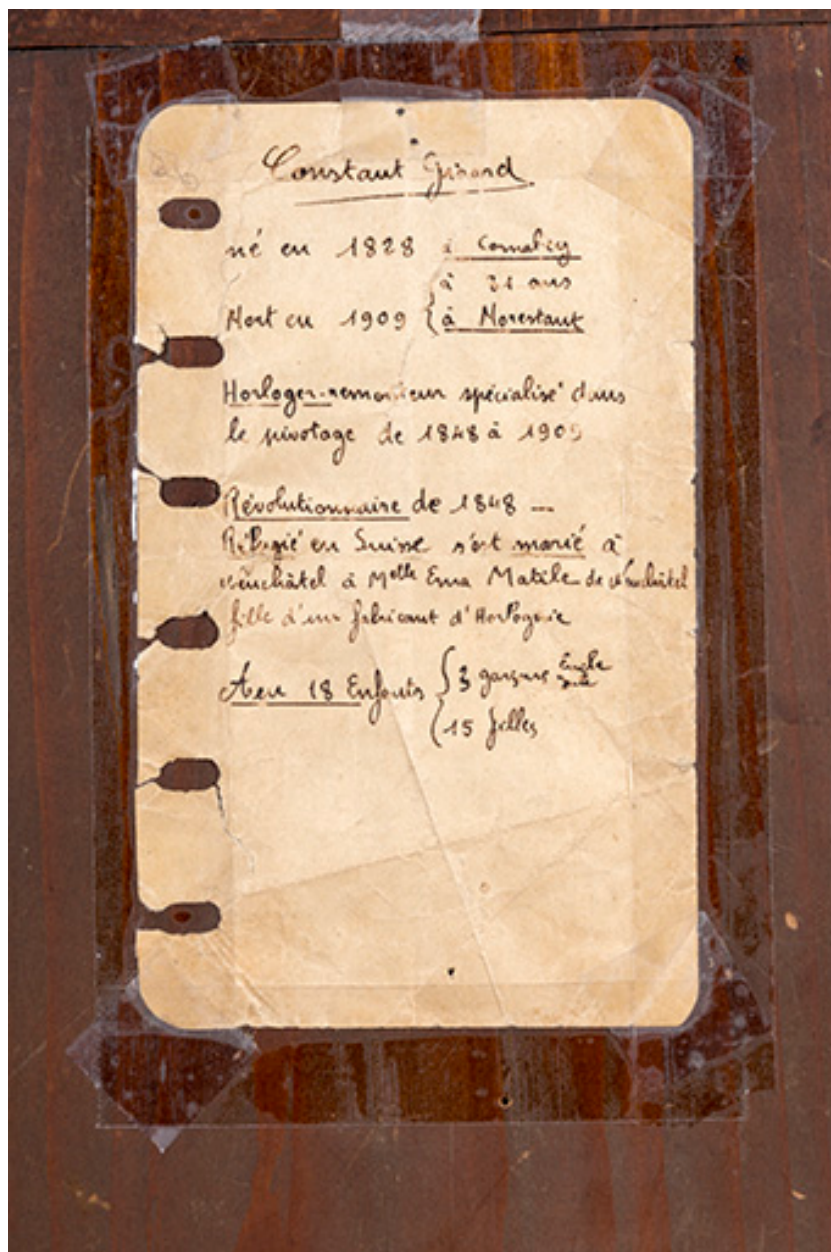 Constant Girard
né en 1828 à
à 81 ans
Mort en 1909 { à Morestant
Horloger-remonteur spécialisé dans
le pivotage de 1848 à 1909
Révolutionnaire de 1848 —
Réfugié en Suisse s'est marié à
Neuchâtel à Melle Ema Matile de Neuchâtel
fille d'un fabricant d'Horlogerie
A eu 18 Enfants { 3 garçons
15 filles